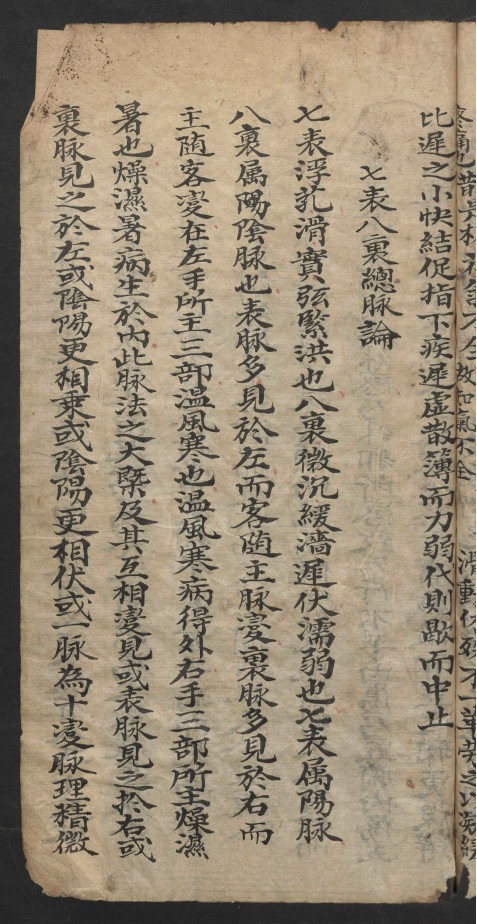 比遲之小快結促指下疾遲虛散簿而力弱代則歇而中止
七表八裏總脉論
七表浮芤滑實弦緊洪也八裏微沉緩濇遲伏濡弱也七表属陽脉
八裏属陽陰脉也表脉多見於左而客随主脉变裏脉多見於右而
主随客变在左手所主三部温風寒也温風寒病得外右手三部所主燥濕
暑也燥濕暑病生於內此脉法之大槩及其互相变見或表脉見之於右或
裏脉見之於左或陰陽更相乘或陰陽更相伏或一脉為十变脉理精微